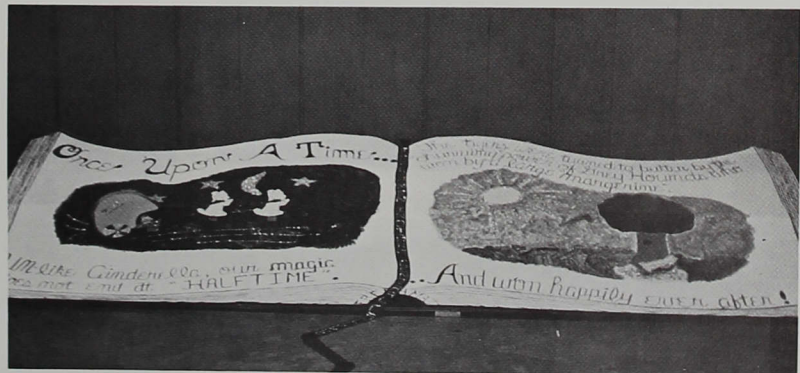 Once Upon A Time...
Unlike Cinderella, our magic
does not end at "HALFTIME".
turned to butter by the
of Piney Hounds
...And won happily ever after!